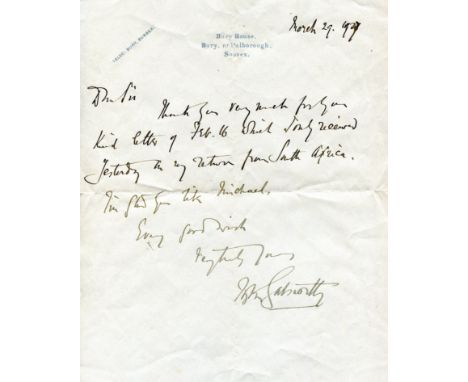 March 29. 1927
TELE: BURY, SUSSEX.
Bury House,
Bury, nr Pulborough,
Sussex.
Dear Sir
Thank you very much for your
kind letter of Feb. 16 which I only received
yesterday on my return from South Africa.
I'm glad you like Michael.
Every good wish
Very truly yours
John Galsworthy